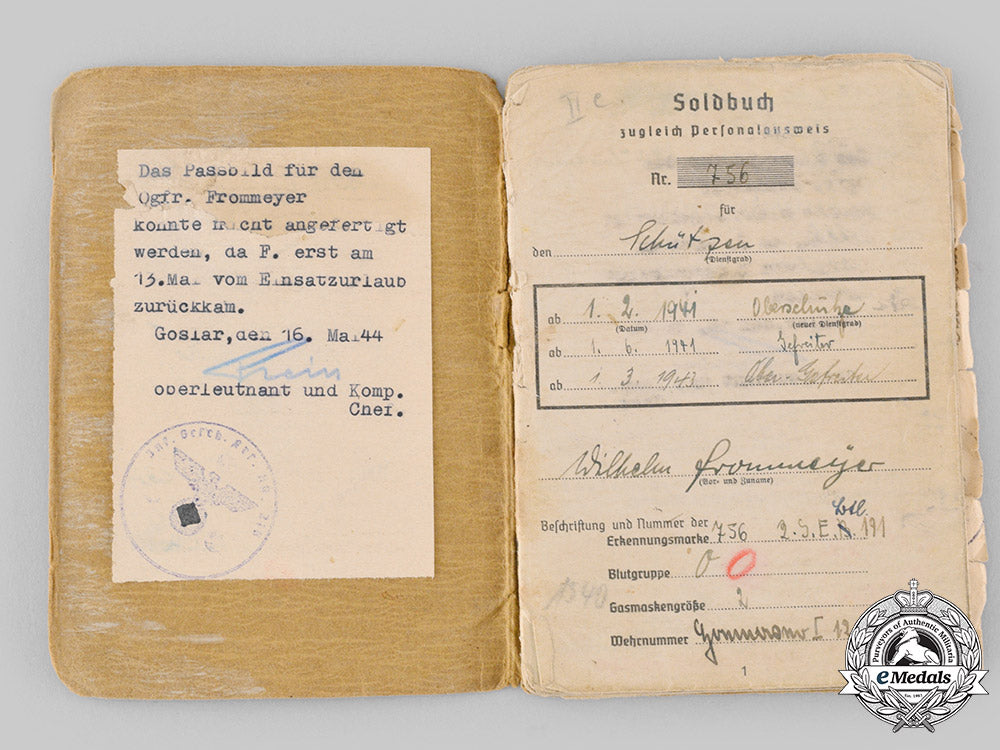 Das Passbild für den
Ogfr. Frommeyer
konnte nicht angefertigt
werden, da F. erst am
13.Mai vom Einsatzurlaub
zurückkam.
Goslar,den 16. Mai44
Oberleutnant und Komp.
Chef.
Inf. Gesch.
II c.
Soldbuch
zugleich Personalausweis
Nr. 756
für
den Schützen
(Dienstgrad)
ab 1. 2. 1941 Oberschütze
(Datum) (neuer Dienstgrad)
ab 1. 6. 1941 Gefreiter
ab 1 3. 1943 Ober-Gefreiter
Wilhelm Frommeyer
(Vor- und Zuname)
Btl.
Beschriftung und Nummer der
Erkennungsmarke 756 2. I. E. 191
Blutgruppe O O
Gasmaskengröße 2
Wehrnummer I
1
Purveyors of Authentic Militaria
eMedals